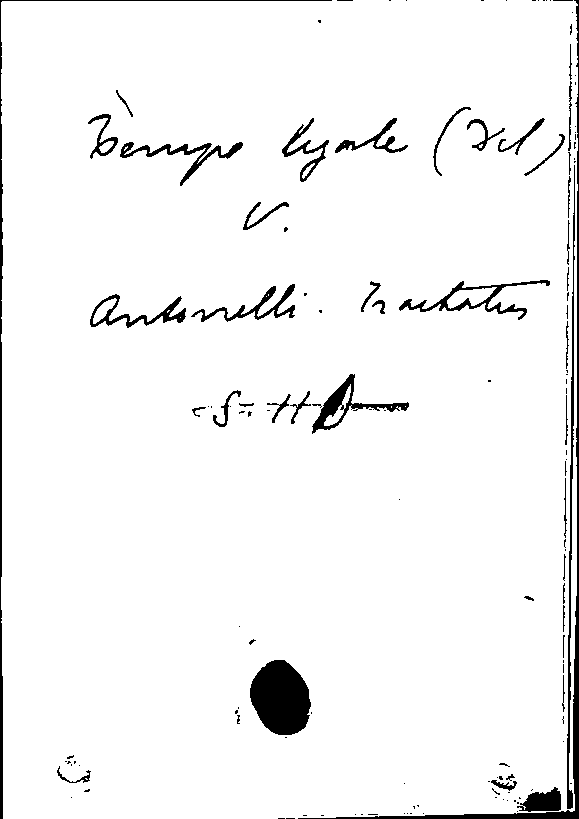 Tempo legale (Del)
V.
Antonelli. Tractatus